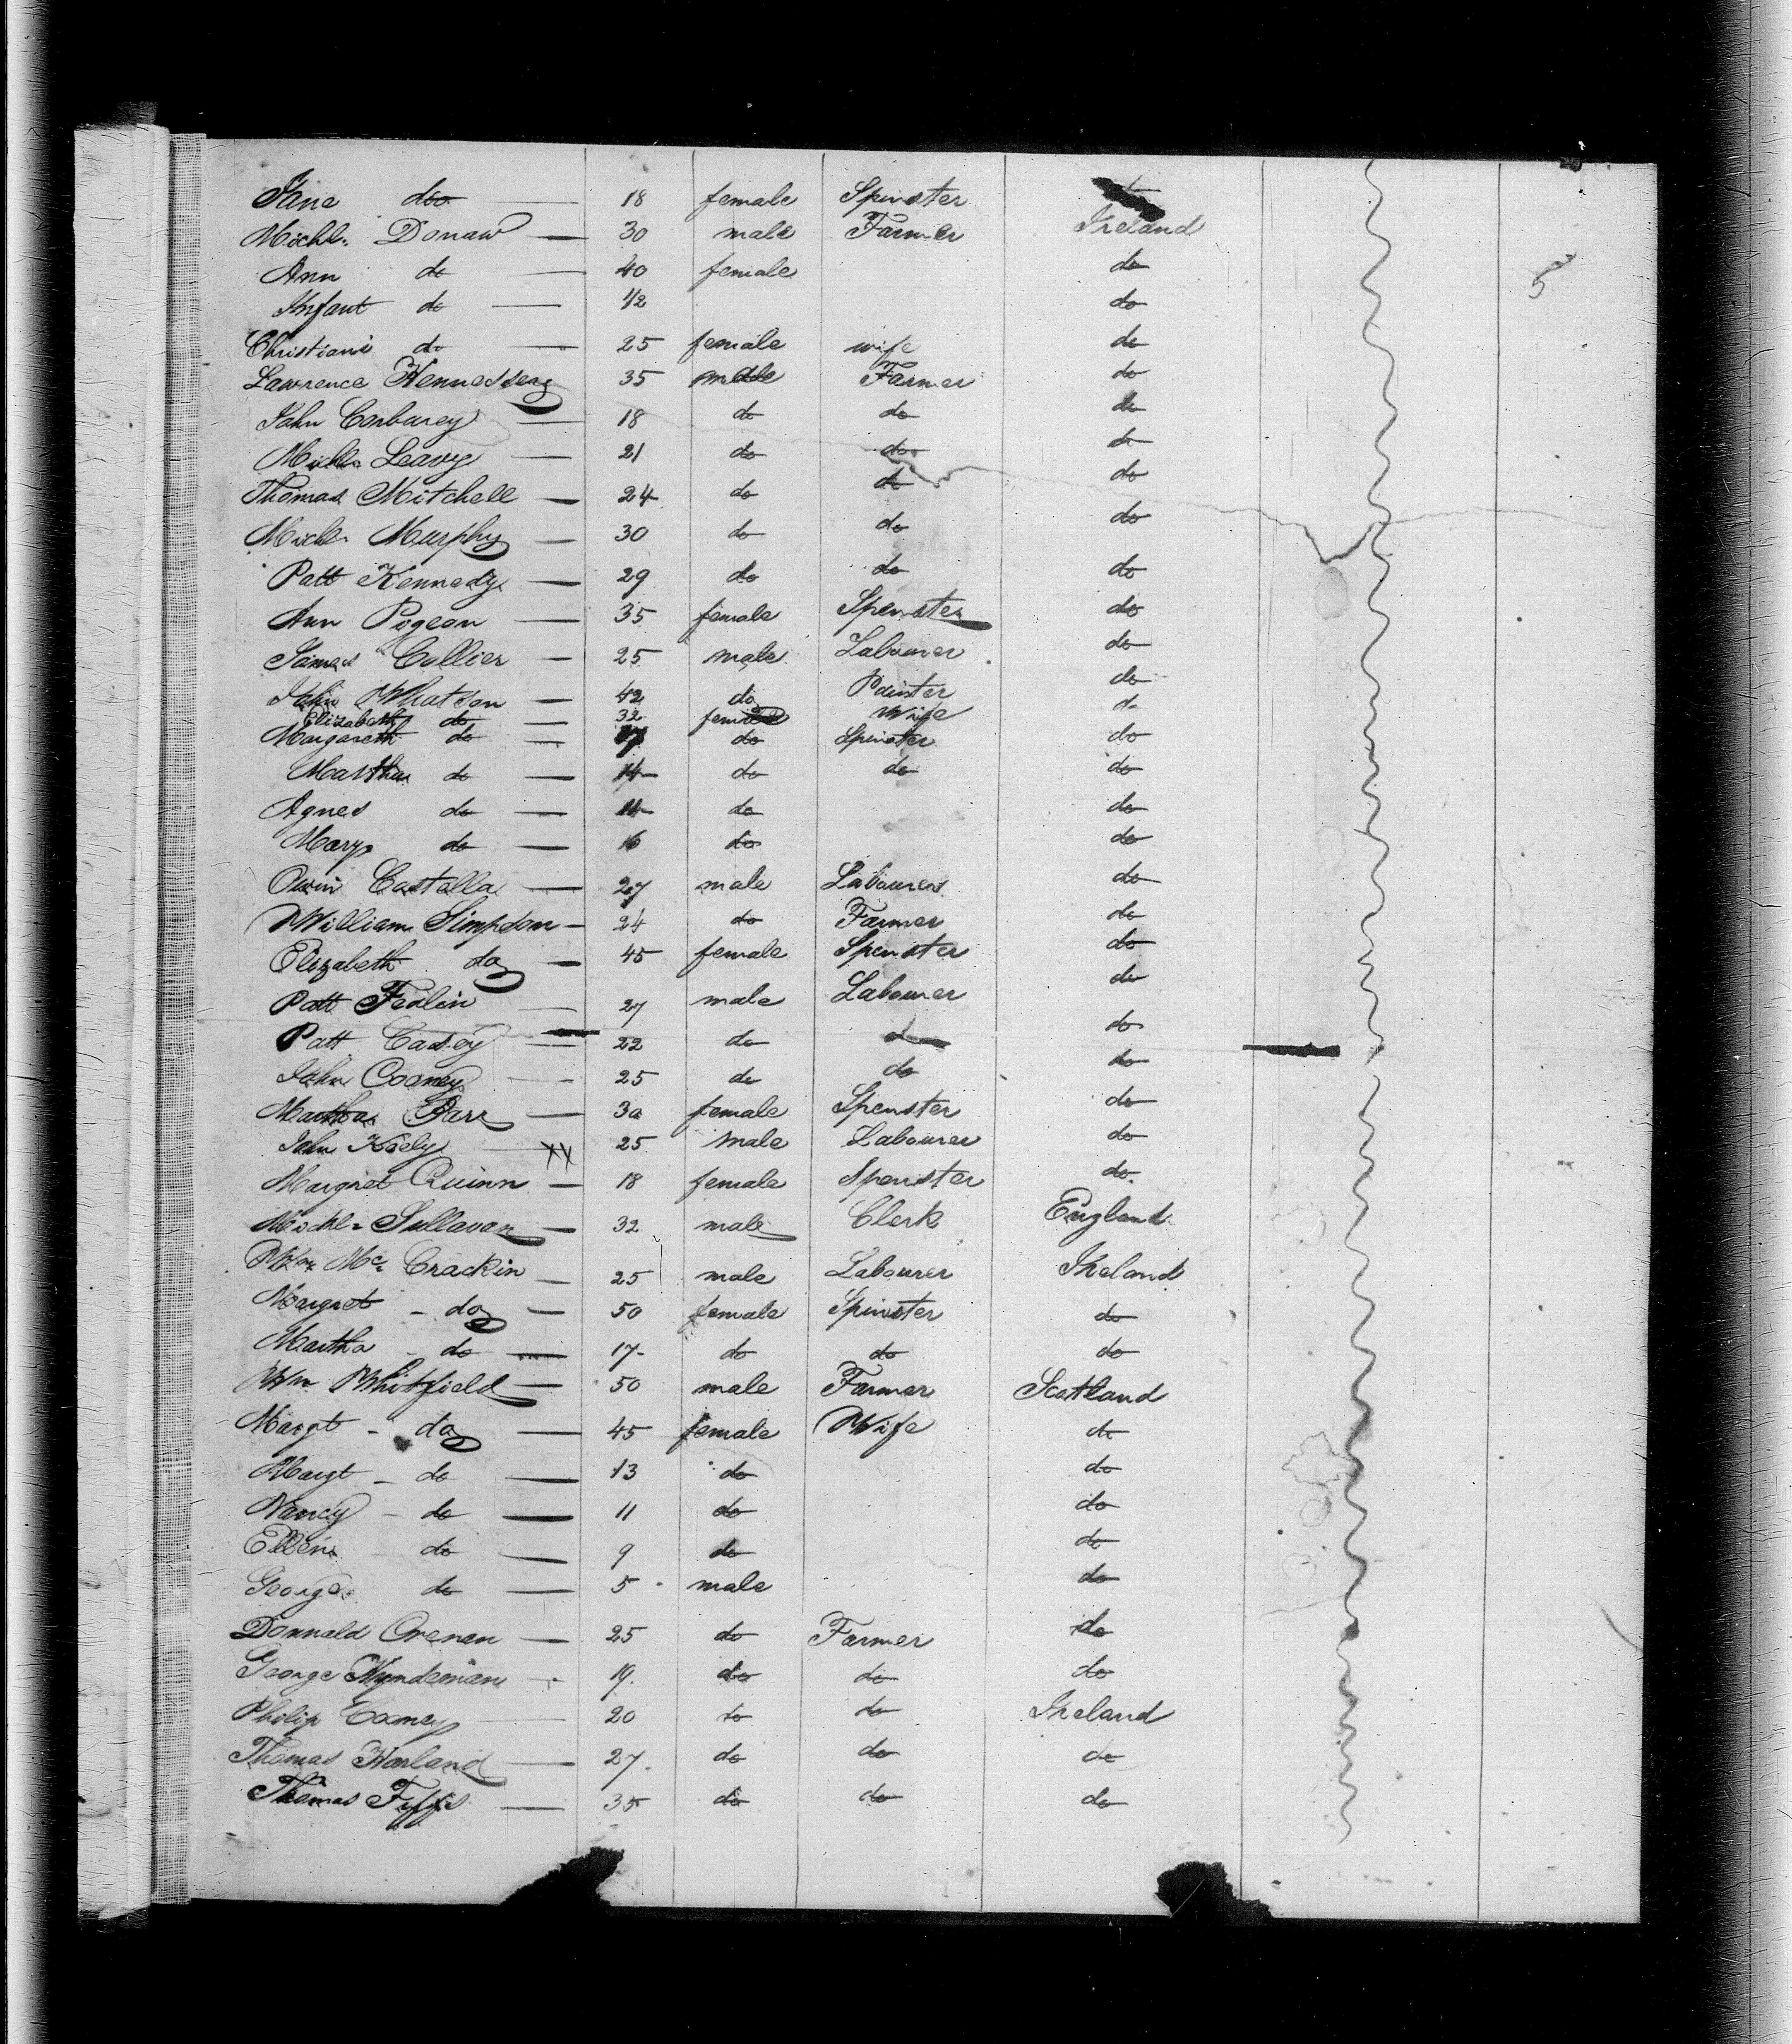 Jane do 18 female Spinster
Michl. Donaw 30 male Farmer Ireland
Ann do 40 female do
Infant do 1/2 do
5
Christiani do 25 female wife do
Lawrence Hennessery 35 male Farmer do
John Corburey 18 do do do
Michl. Leavy 21 do do do
Thomas Mitchell 24 do do do
Michl. Murphy 30 do do do
Patt Kennedy 29 do do do
Ann Pigeon 35 female Spenster do
James Collier 25 male Labourer do
John Whatson 42 do Painter do
Elizabeth do 32 female Wife do
Margareth do 17 do Spinster do
Martha do 14 do do do
Agnes do 11 do do
Mary do 16 do do
Owin Costella 27 male Labourer do
William Simpson 24 do Farmer do
Elizabeth do 45 female Spenster do
Patt Fealin 27 male Labourer do
Patt Casey 22 do do do
John Cooney 25 do do do
Martha Parr 30 female Spenster do
John Kiely XX 25 male Labourer do
Margret Quinn 18 female Spenster do
Michl. Sullavan 32 male Clerk England
Wm. Mc. Crackin 25 male Labourer Ireland
Margret do 50 female Spinster do
Martha do 17 do do do
Wm Whitfield 50 male Farmer Scotland
Margt do 45 female Wife do
Margt do 13 do do
Nancy do 11 do do
Ellen do 9 do do
George do 5 male do
Donnald Crenan 25 do Farmer do
George 19 do do do
Philip Cooney 20 do do Ireland
Thomas Harland 27 do do do
Thomas 35 do do do